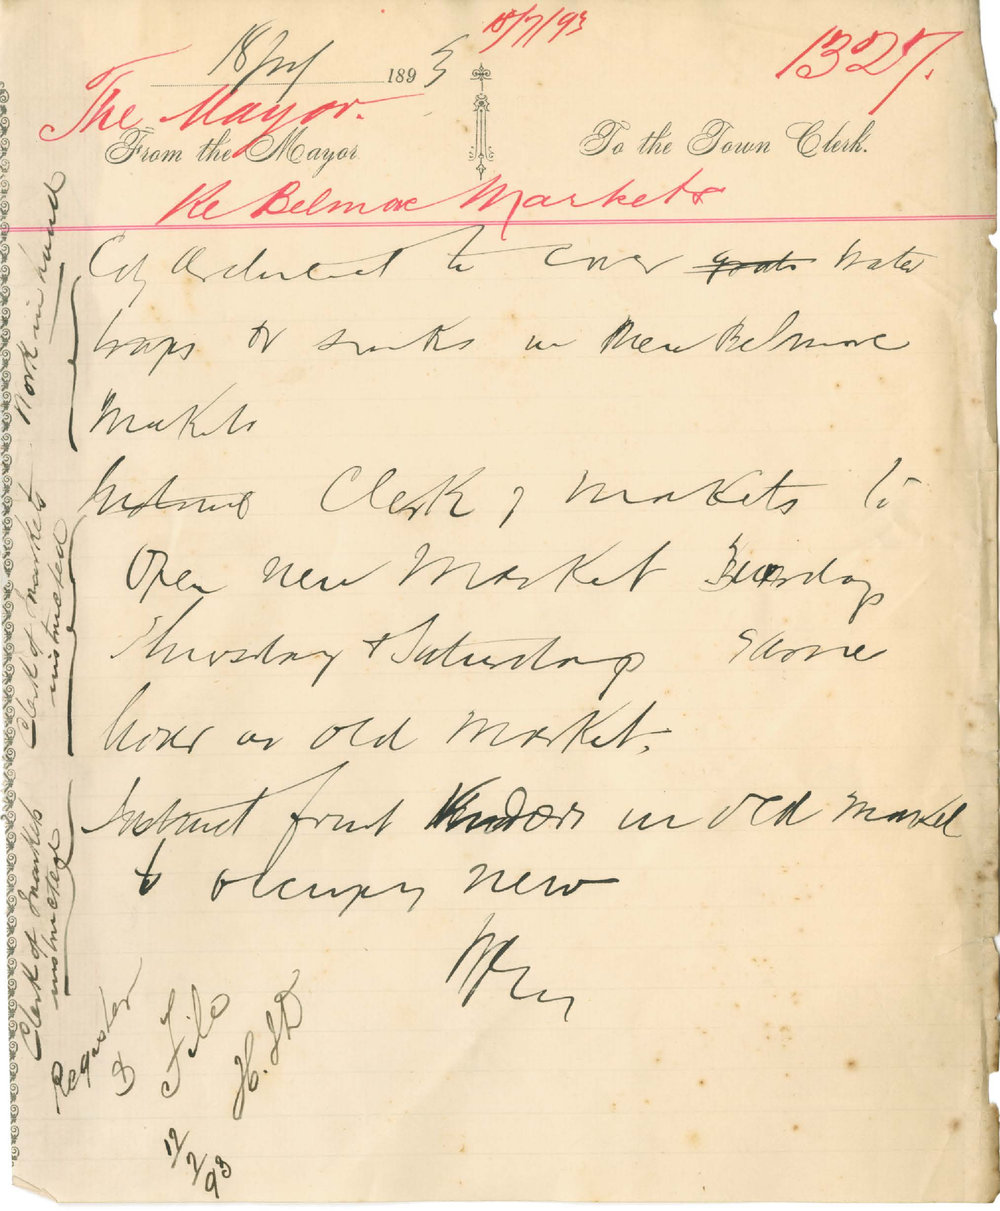 18 July 1893
18/7/93
1327.
The Mayor.
From the Mayor
To the Town Clerk.
Re Belmore Markets
City Architect to cover grates Water
traps or sinks in New Belmore
Markets
Instruct Clerk of Markets to
Open new Market Tuesday
Thursday & Saturday same
hour as old Market.
Instruct fruit Vendors in old Market
to occupy new
Work in hand
Clerk of Markets
instructed
Clerk of Markets
instructed
Register
&
File
12/2/93